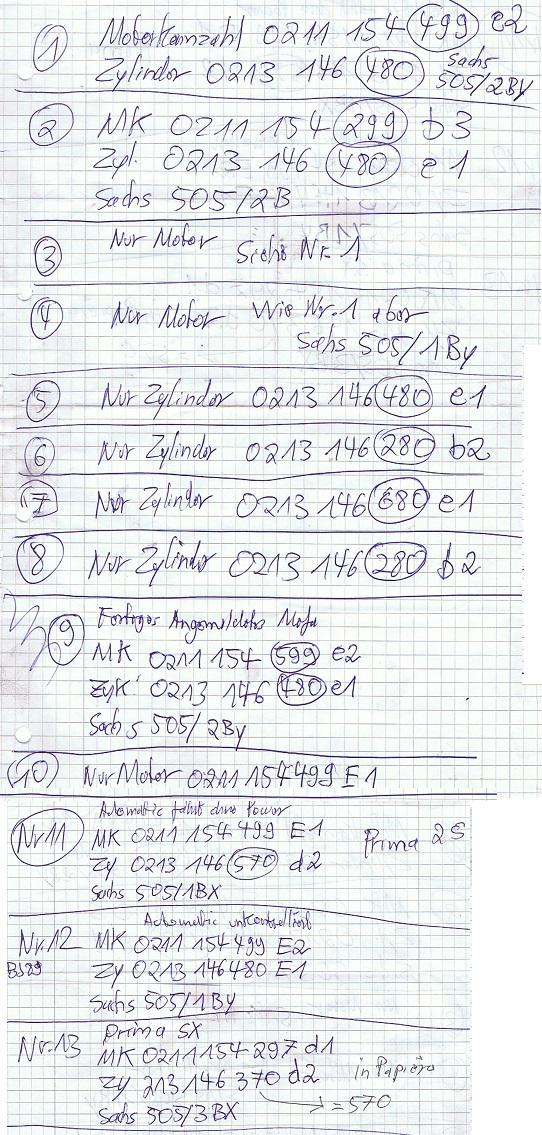 1 Motorkennzahl 0211 154 499 e2
Zylinder 0213 146 480 Sachs 505/2BY
2 MK 0211 154 299 b3
Zyl. 0213 146 480 e1
Sachs 505/2B
3 Nur Motor Siehe Nr. 1
4 Nur Motor Wie Nr. 1 aber
Sachs 505/1By
5 Nur Zylinder 0213 146 480 e1
6 Nur Zylinder 0213 146 280 b2
7 Nur Zylinder 0213 146 680 e1
8 Nur Zylinder 0213 146 280 b2
9 Fertiges Angemeldetes Mofa
MK 0211 154 599 e2
Zyk 0213 146 480 e1
Sachs 505/2By
10 Nur Motor 0211 154499 E1
Automatic fährt ohne Power
Nr 11 MK 0211 154 499 E1 Prima 2S
Zy 0213 146 570 d2
Sachs 505/1BX
Automatic
Nr. 12 MK 0211 154 499 E2
BJ89 Zy 0213 146480 E1
Sachs 505/1By
Prima SX
Nr. 13 MK 0211154 297 d1
Zy 213 146 370 d2 in Papiere
=570
Sachs 505/3BX